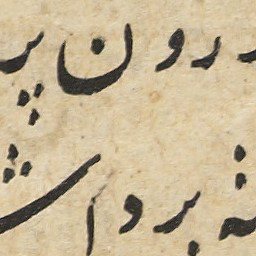 درون پر
نه برداش